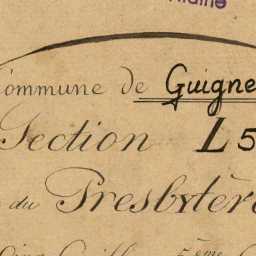 taine
Commune de Guigne
Section L5
du Presbytère
5ème